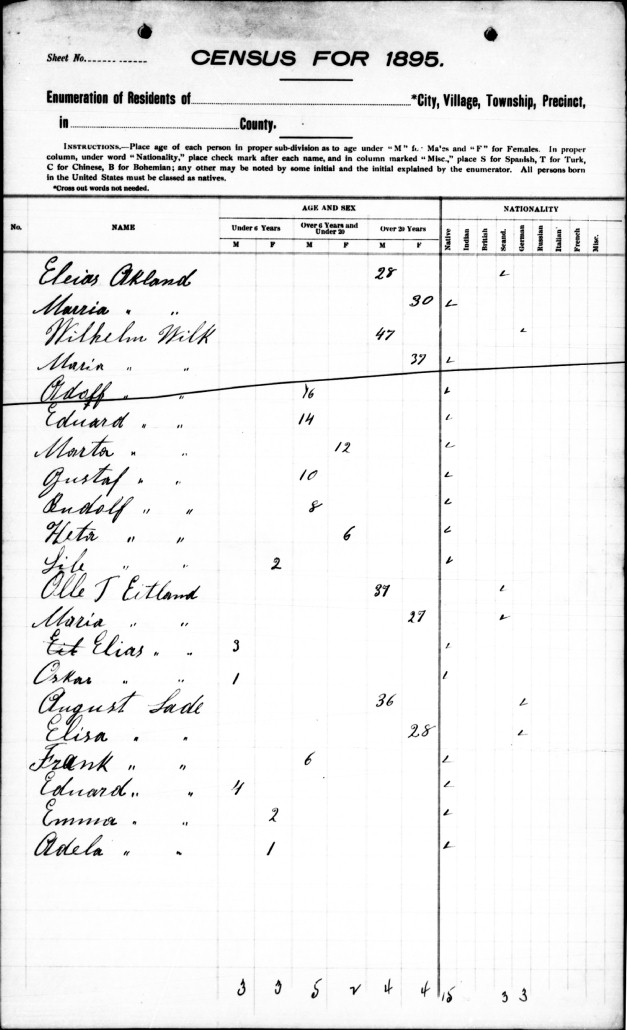 Sheet No.
CENSUS FOR 1895.
Enumeration of Residents of *City, Village, Township, Precinct,
in County.
INSTRUCTIONS.—Place age of each person in proper sub-division as to age under "M" for Males and "F" for Females. In proper
column, under word "Nationality," place check mark after each name, and in column marked "Misc.," place S for Spanish, T for Turk,
C for Chinese, B for Bohemian; any other may be noted by some initial and the initial explained by the enumerator. All persons born
in the United States must be classed as natives.
*Cross out words not needed.
No. NAME AGE AND SEX NATIONALITY
Under 6 Years Over 6 Years and Under 20 Over 20 Years
M F M F M F Native Indian British Scand. German Russian Italian French Misc.
Eleias Akland 28 ✓
Marria " " 30 ✓
Wilhelm Wilk 47 ✓
Maria " " 37 ✓
Adoff " " 16 ✓
Eduard " " 14 ✓
Marta " " 12 ✓
Gustaf " " 10 ✓
Rudolf " " 8 ✓
Heta " " 6 ✓
" " 2 ✓
Olle T Eitland 37 ✓
Maria " " 27 ✓
Elias " " 3 ✓
Oskar " " 1 ✓
August Lade 36 ✓
Elisa " " 28 ✓
Frank " " 6 ✓
Eduard " " 4 ✓
Emma " " 2 ✓
Adela " " 1 ✓
3 3 5 2 4 4 15 3 3